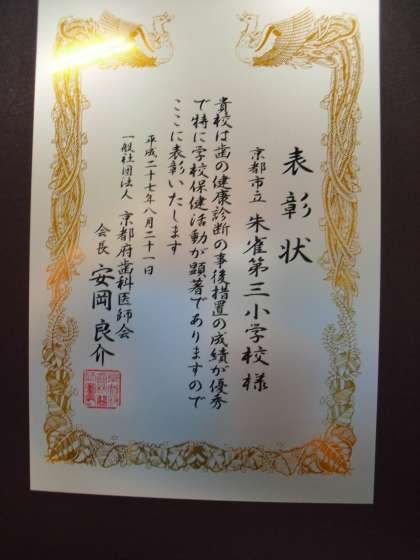 表彰状
京都市立 朱雀第三小学校様
貴校は歯の健康診断の事後措置の成績が優秀
で特に学校保健活動が顕著でありますので
ここに表彰いたします
平成二十七年八月二十一日
一般社団法人 京都府歯科医師会
会長 安岡良介